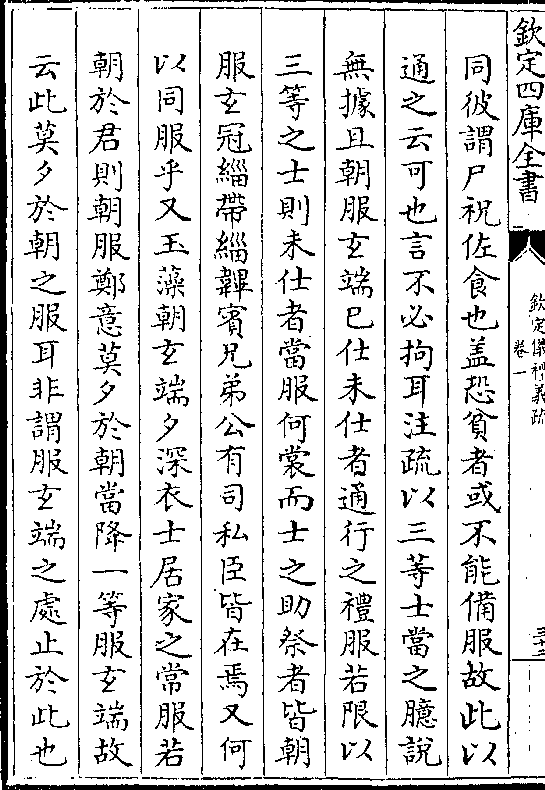 欽定四庫全書
欽定儀禮義疏
卷一
三十二
同彼謂尸祝佐食也盖恐貧者或不能備服故此以
通之云可也言不必拘耳注疏以三等士當之臆說
無據且朝服玄端已仕未仕者通行之禮服若限以
三等之士則未仕者當服何裳而士之助祭者皆朝
服玄冠緇帶緇韠賓兄弟公有司私臣皆在焉又何
以同服乎又玉藻朝玄端夕深衣士居家之常服若
朝於君則朝服鄭意莫夕於朝當降一等服玄端故
云此莫夕於朝之服耳非謂服玄端之處止於此也